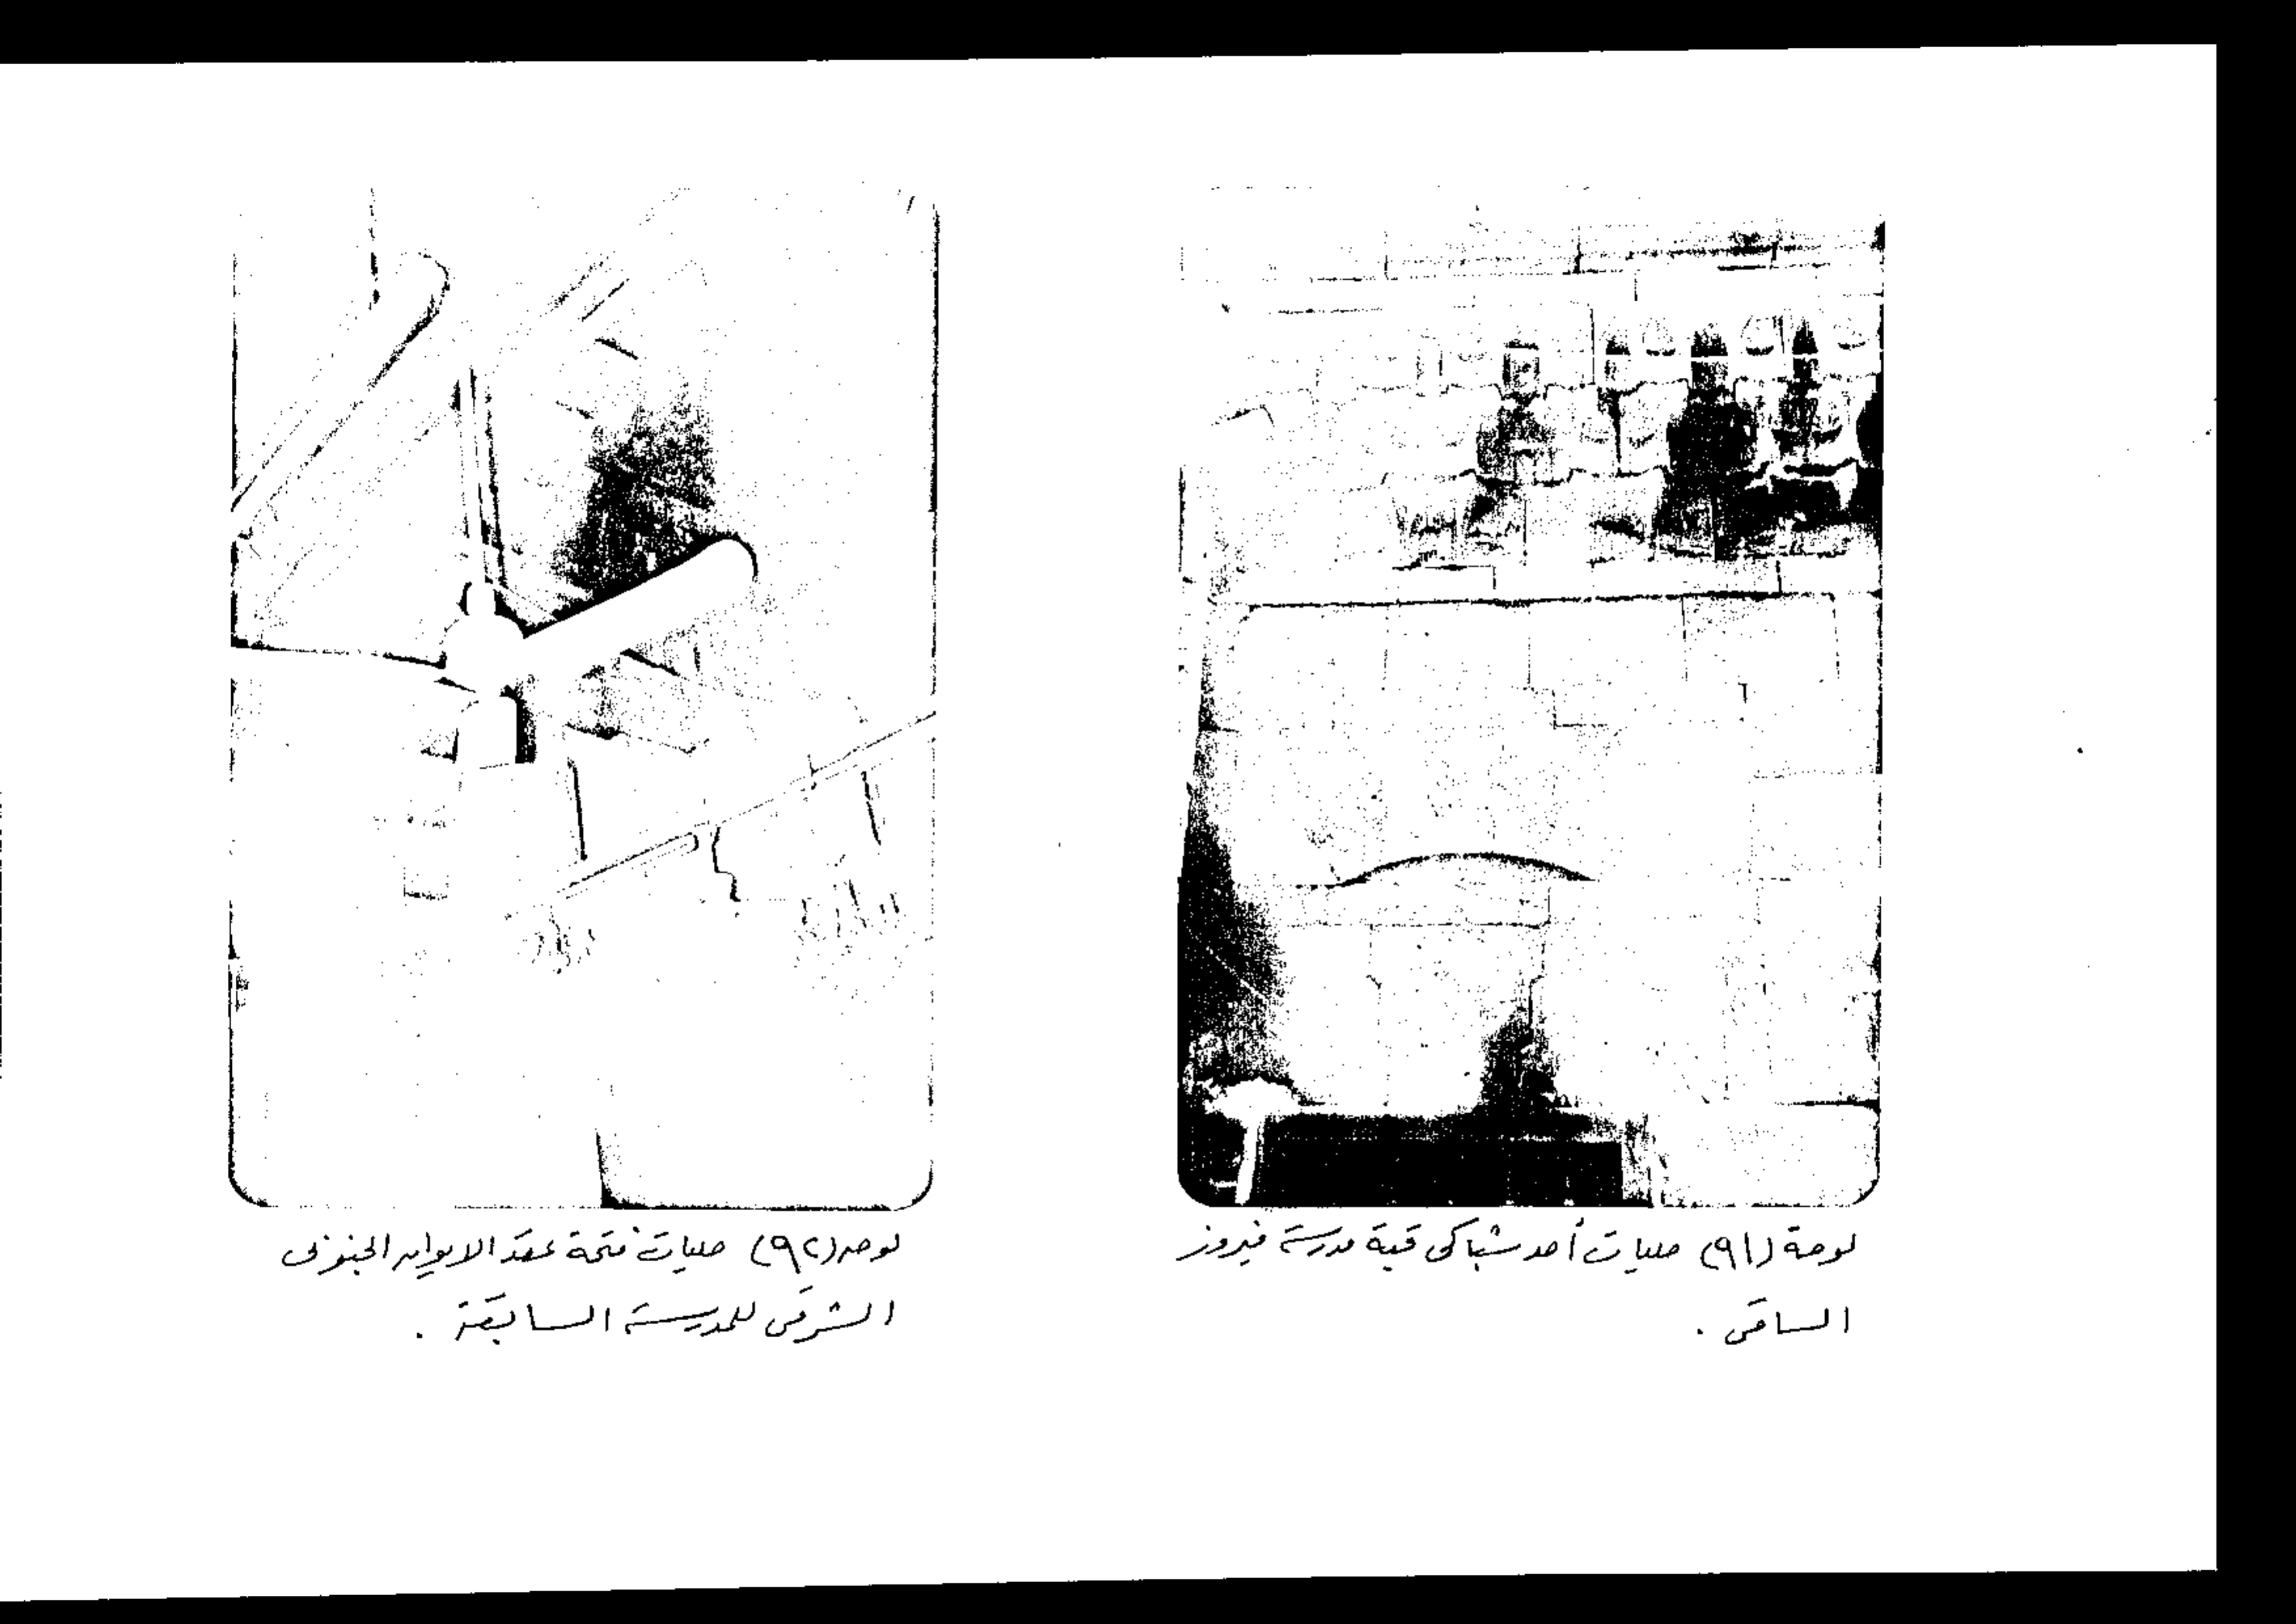 لوحة (٩١) حليات أحد شباكى قبة مدرسة فيروز
الساقى .
لوحه (٩٢) حليات فتحة عقد الايوان الجنوبى
الشرقى للمدرسة السابقة .